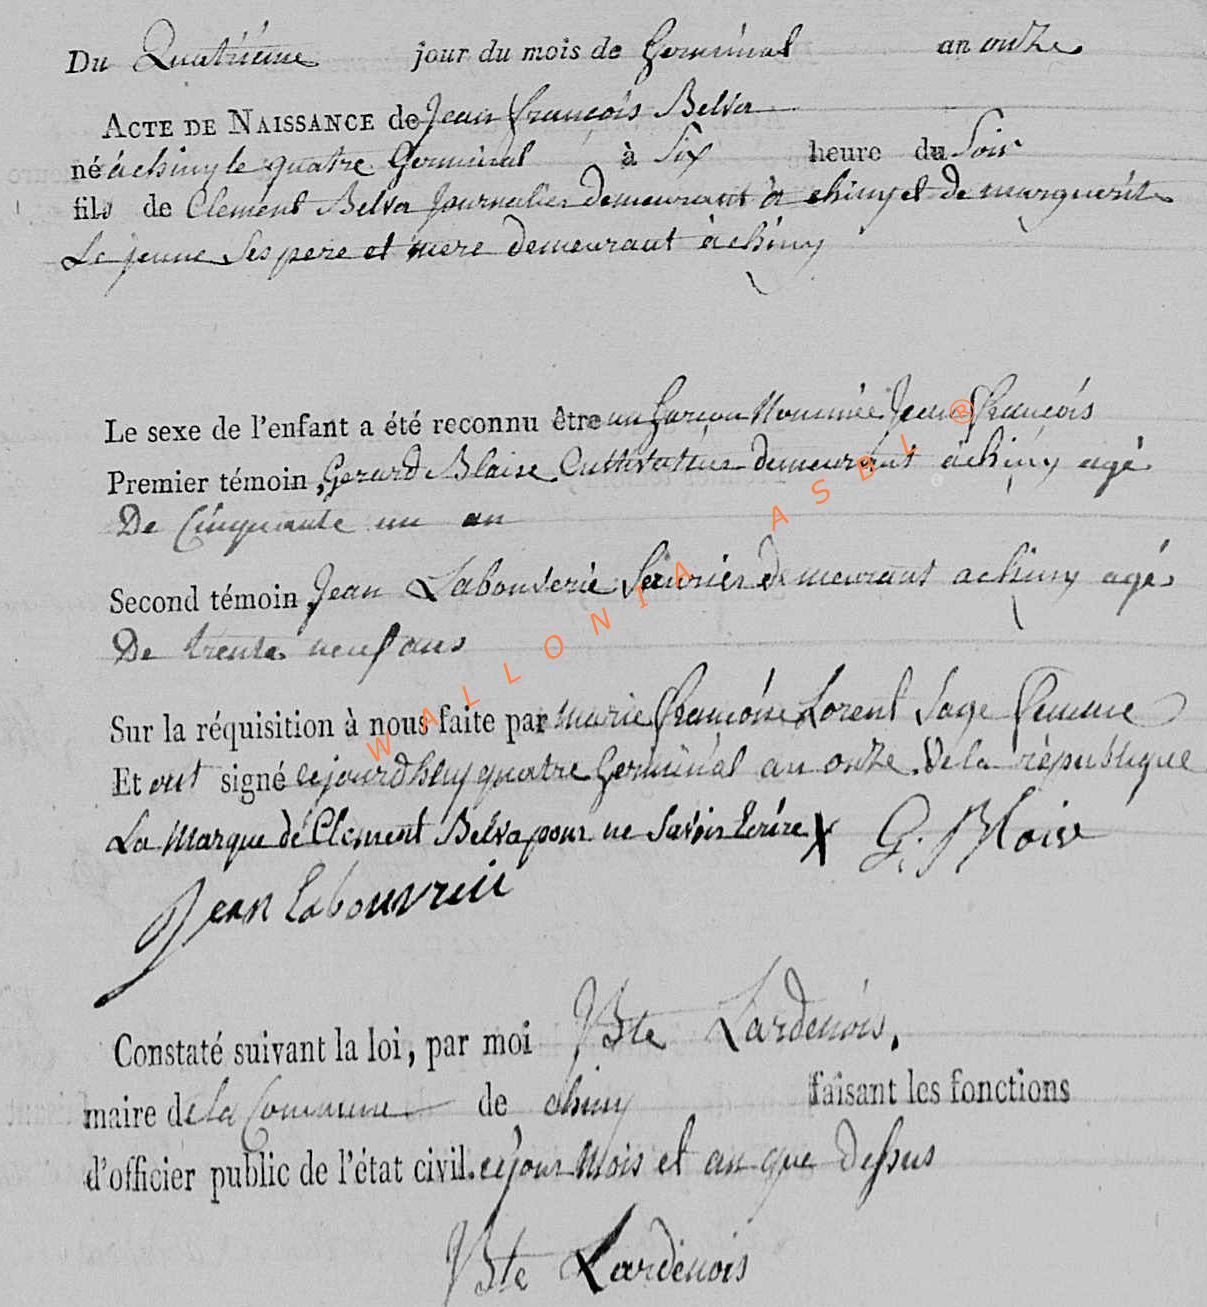 Du Quatrième jour du mois de Germinal an onze
ACTE DE NAISSANCE de Jean François Belva
né à chiny le quatre Germinal à Six heure du Soir
fils de Clement Belva Journalier demeurant à chiny et de marguerite
Le jeune Ses pere et mere demeurant à chiny
Le sexe de l'enfant a été reconnu être un garcon Nommée Jean François
Premier témoin Gerard Blaise Cultivateur demeurant à chiny agé
De Cinquante un an
Second témoin Jean Labouverie demeurant a chiny agé
De trente neuf ans
Sur la réquisition à nous faite par marie Françoise Lorent Sage Femme
Et ont signé cejourdhuy quatre Germinal an onze de la république
La Marque de Clement Belva pour ne Savoir Ecrire X G. Blaise
Jean Labouvrie
Constaté suivant la loi, par moi JBte Lardenois,
maire de la Commune de chiny faisant les fonctions
d'officier public de l'état civil. ce jour Mois et an que dessus
JBte Lardenois
WALLONIA ASBL ®